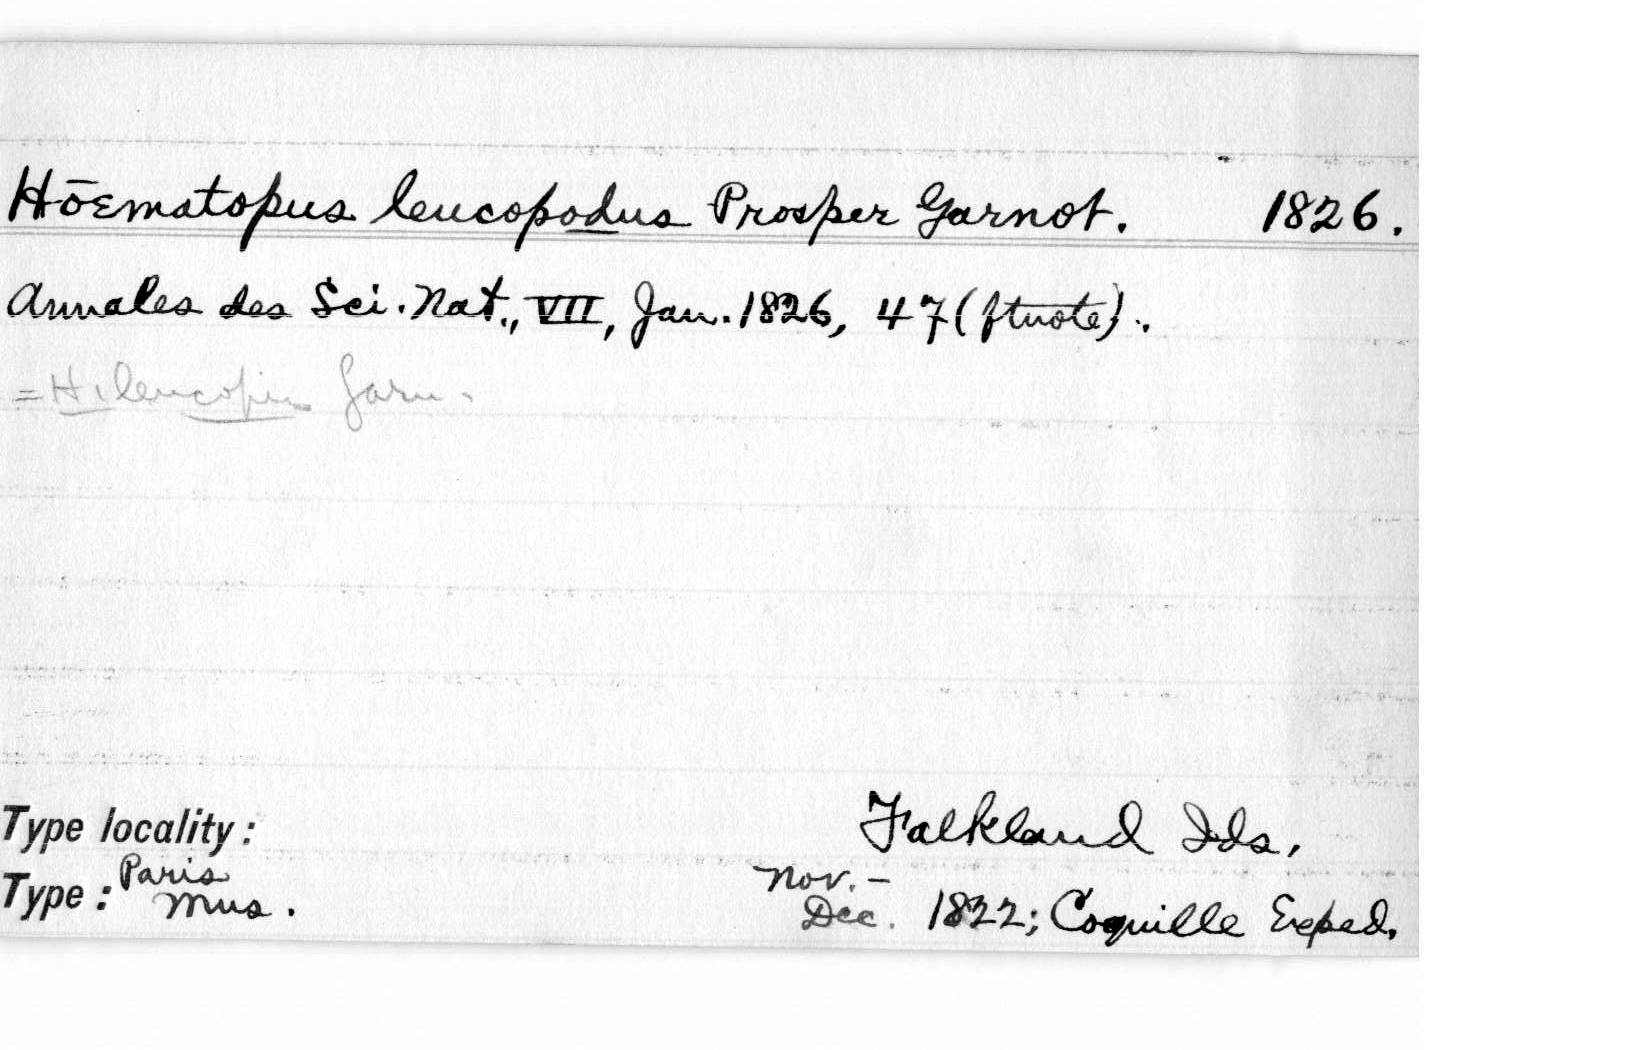 Hōematopus leucopodus Prosper Garnot. 1826.
Annales des Sci. Nat., VII, Jan. 1826, 47 (ftnote).
= H. leucopus Garn.
Type locality: Falkland Ids,
Type: Paris Mus. Nov. – Dec. 1822; Coquille Exped.